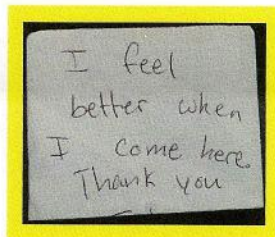 I feel
better when
I come here.
Thank you